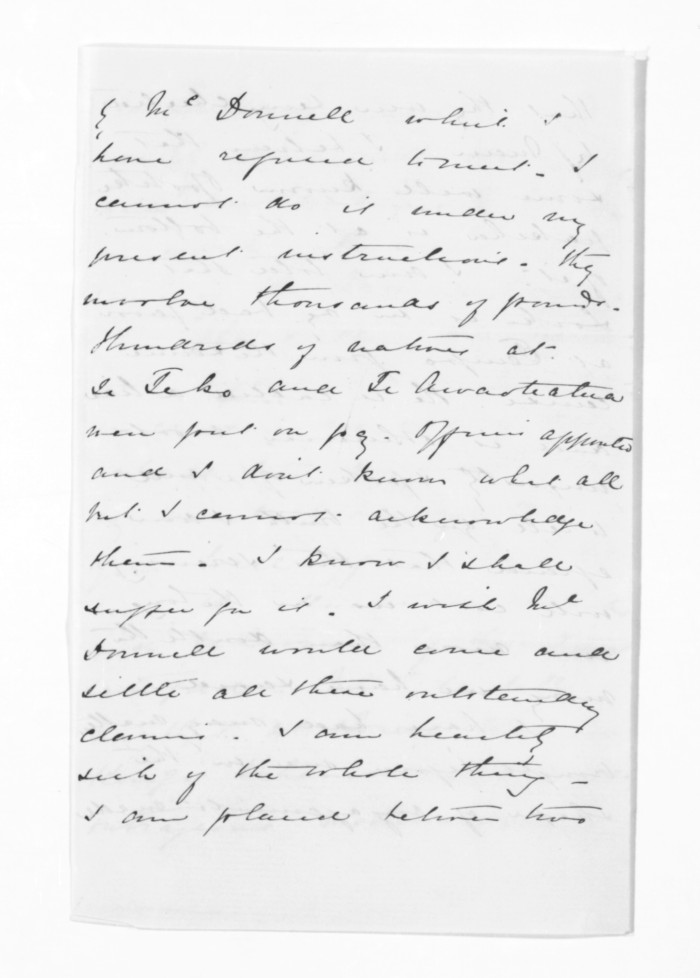 by McDonnell which I
have refused to meet. I
cannot do it under my
present instructions. They
involve thousands of pounds.
Hundreds of natives at
Te Teko and Te Awaoteatua
were put on pay. Officers appointed
and I dont know what all
but I cannot acknowledge
them. I know I shall
suffer for it. I wish Mc
Donnell would come and
settle all these outstanding
claims. I am heartily
sick of the whole thing -
I am placed between two